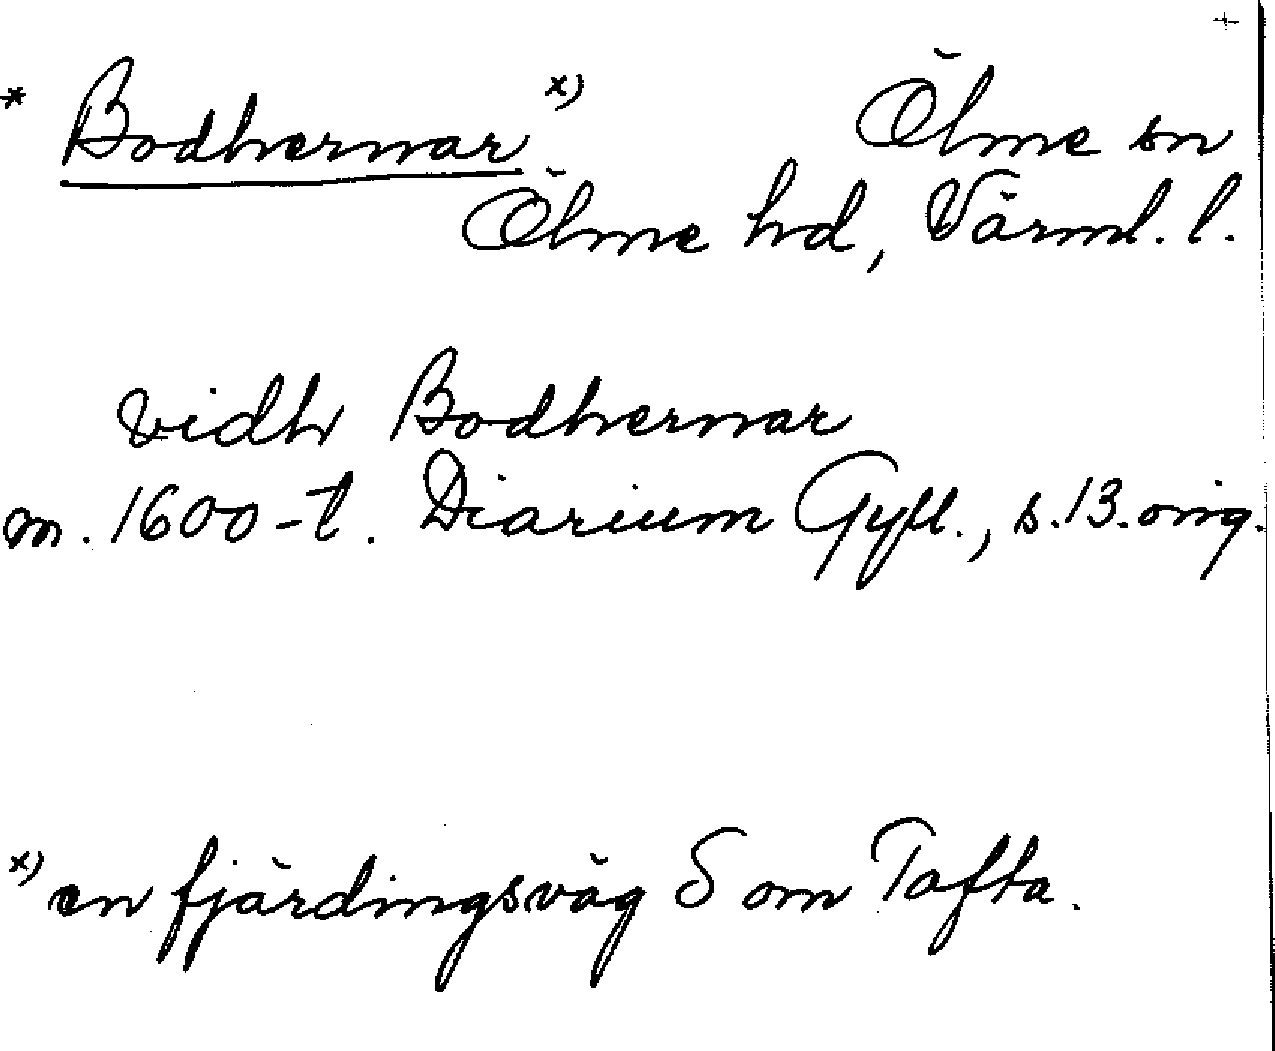 * Bodhernar x) Ölme sn
Ölme hd, Värml. l.
vidh Bodhernar
m. 1600-t. Diarium Gyll., s. 13. orig.
x) en fjärdingsväg S om Tofta.